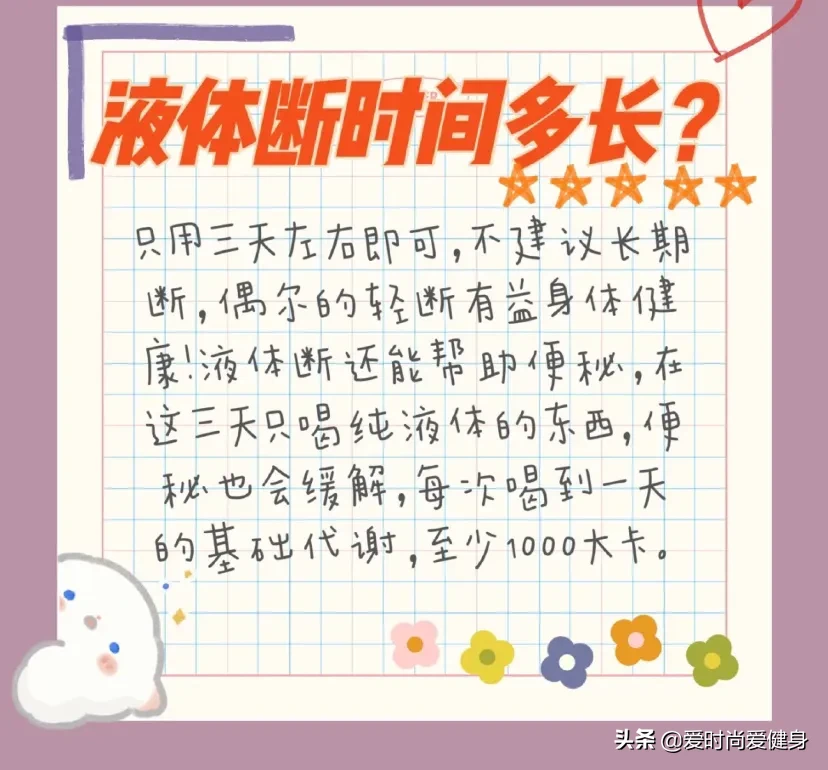 液体断时间多长？
只用三天左右即可,不建议长期
断,偶尔的轻断有益身体健
康!液体断还能帮助便秘,在
这三天只喝纯液体的东西,便
秘也会缓解,每次喝到一天
的基础代谢,至少1000大卡。
头条 @爱时尚爱健身